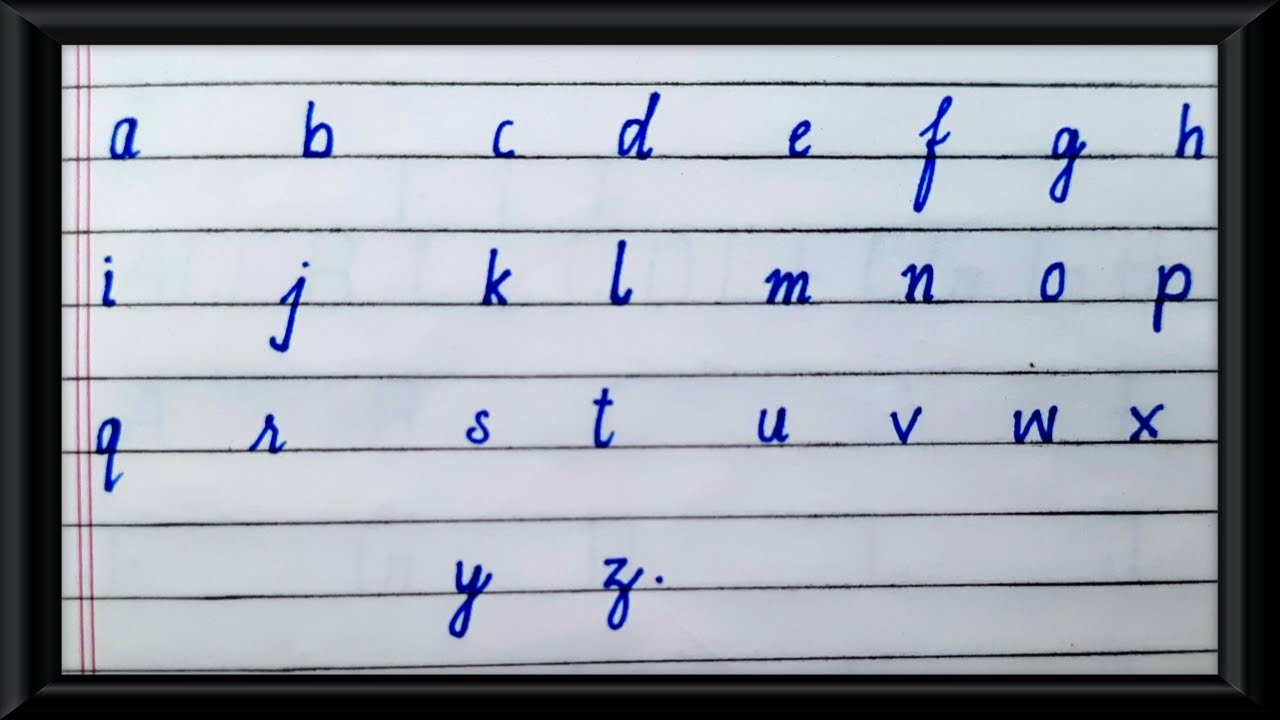 a b c d e f g h
i j k l m n o p
q r s t u v w x
y z.